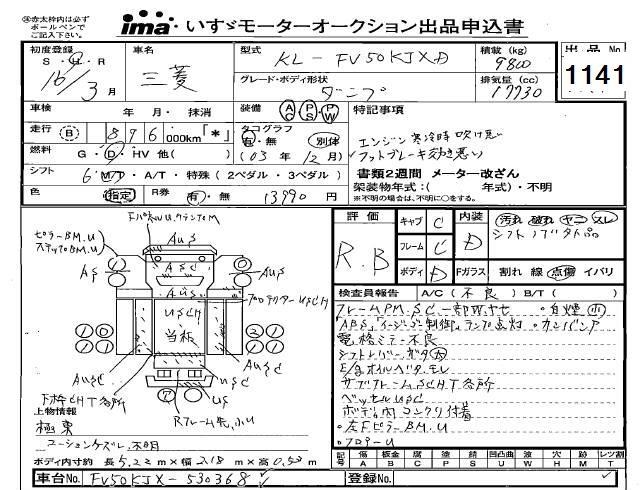 ※赤太枠内は必ず
ボールペンで
ご記入下さい。
ima いすゞモーターオークション出品申込書
初度登録 S・H・R 16/3月
車名 三菱
型式 KL-FV50KJXD
積載(kg) 9800
出品No. 1141
グレード・ボディ形状 ダンプ
排気量(cc) 17730
車検 年 月・抹消
装備 AC PS PW
特記事項
走行 B 896 000km「*」
タコグラフ 有・無 別体
エンジン寒冷時吹け悪い
燃料 G・D・HV 他( )
(03年12月)
フットブレーキ効き悪い
シフト 6 MT・A/T・特殊(2ペダル・3ペダル)
書類2週間 メーター改ざん
架装物年式:( 年式)・不明
色 指定 R券 有・無 13990円
※不明の場合は、不明に○をする。
ピラーBM.U
ステップBM.U
AUS
AS
ASC
AUS
USCH
当板
AUSC
USC
US
下枠CHT各所
Rフレーム先小U
上物情報
極東
コーションケズレ、不明
ボディ内寸約 長5.22m×幅2.18m×高0.53m
車台No. FV50KJX-530368
登録No.
評価 R.B
キャブ C
フレーム C
ボディ D
内装 D
汚れ 破れ ヤニ スレ
シフトノブ欠品
Fガラス 割れ 線 点傷 イバリ
検査員報告 A/C(不良) B/T( )
フレームPM.SC
「ABS」「イージーゴー制御」ランプ点灯
電格ミラー不良
E/gオイルベタ、モレ
サブフレームSCHT各所
ベッセルUSC
ボディ内コンクリ付着
・左FピラーBM.U
・フロアーU
記号 傷A 板金B 腐食C 塗装P サビS 凹凸曲U 歪W 穴H 跡M レツ割T